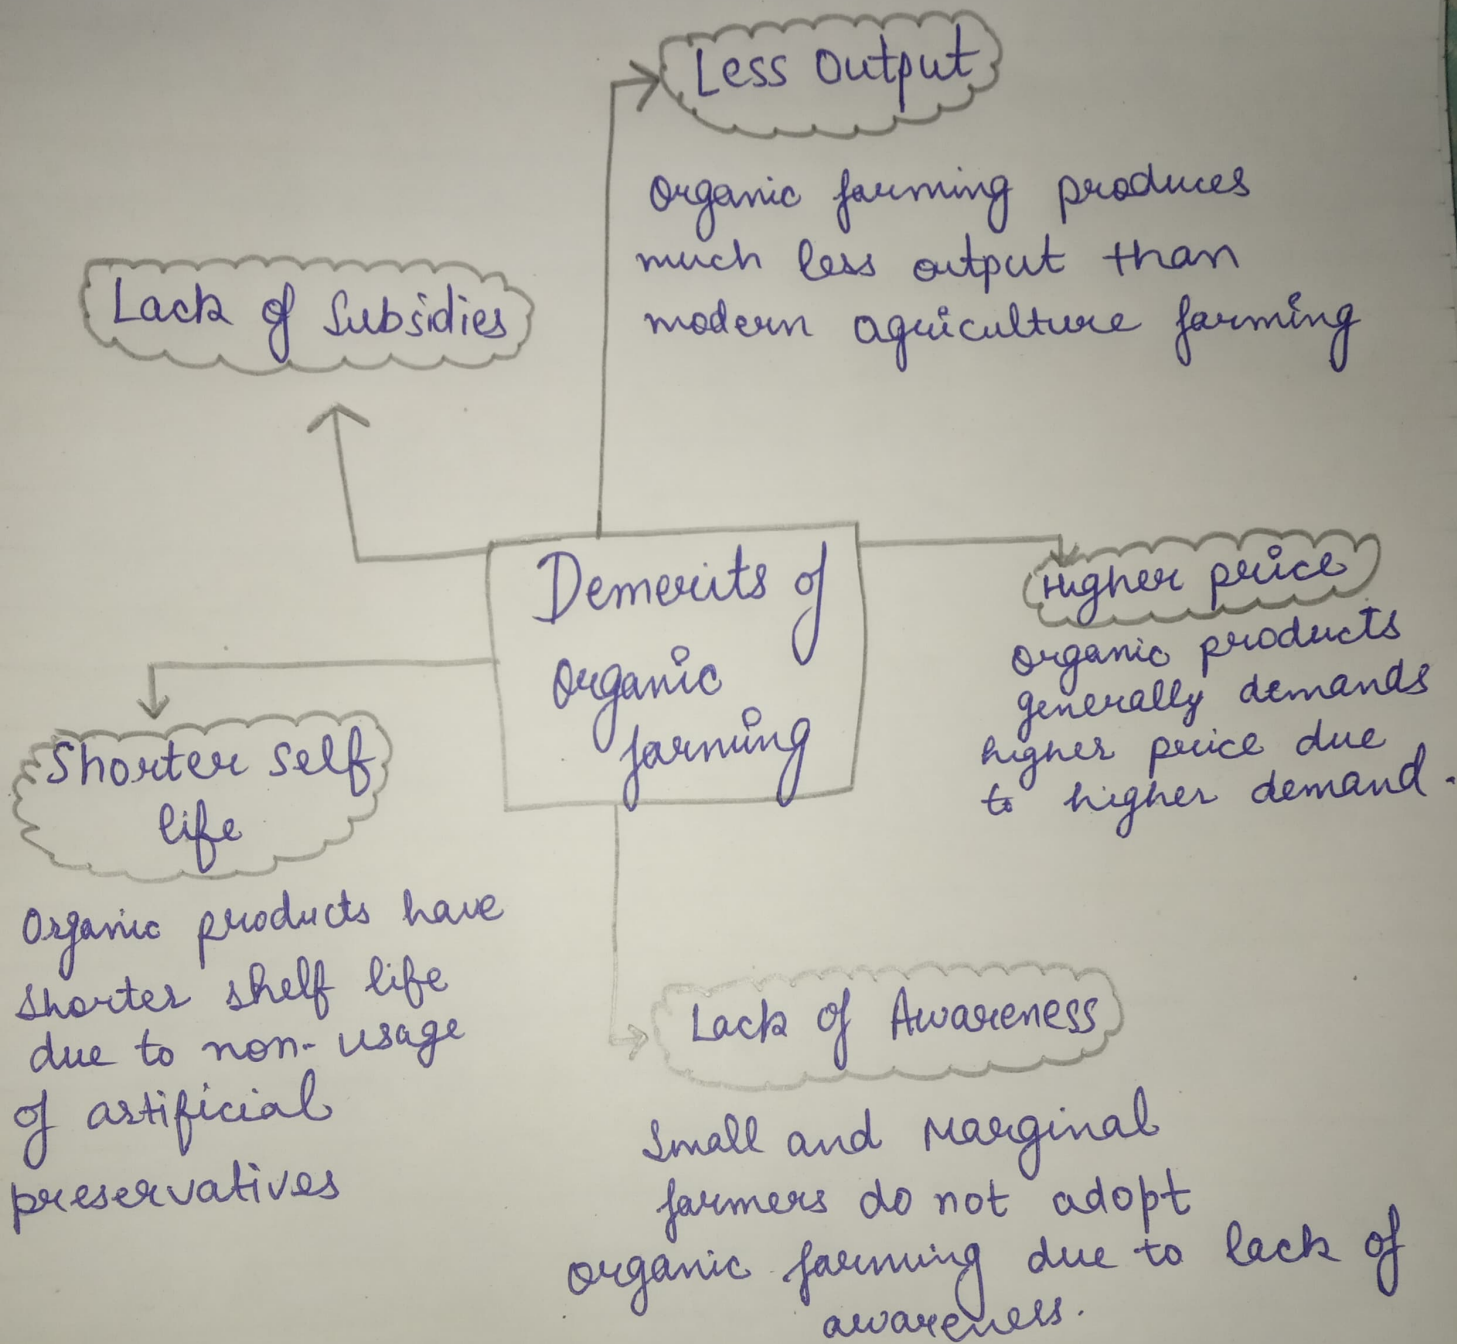 Less Output
Organic farming produces
much less output than
modern agriculture farming
Lack of Subsidies
Demerits of
Organic
farming
Higher price
Organic products
generally demands
higher price due
to higher demand.
Shorter Self
life
Organic products have
shorter shelf life
due to non-usage
of artificial
preservatives
Lack of Awareness
Small and Marginal
farmers do not adopt
organic farming due to lack of
awareness.